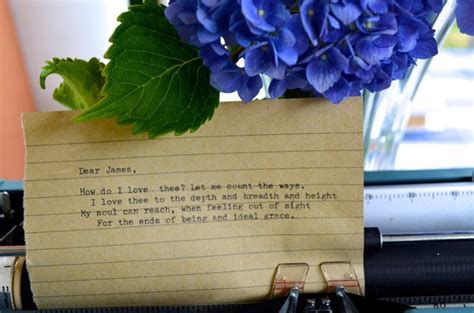 Dear James,
How do I love thee? Let me count the ways.
I love thee to the depth and breadth and height
My soul can reach, when feeling out of sight
For the ends of being and ideal grace.